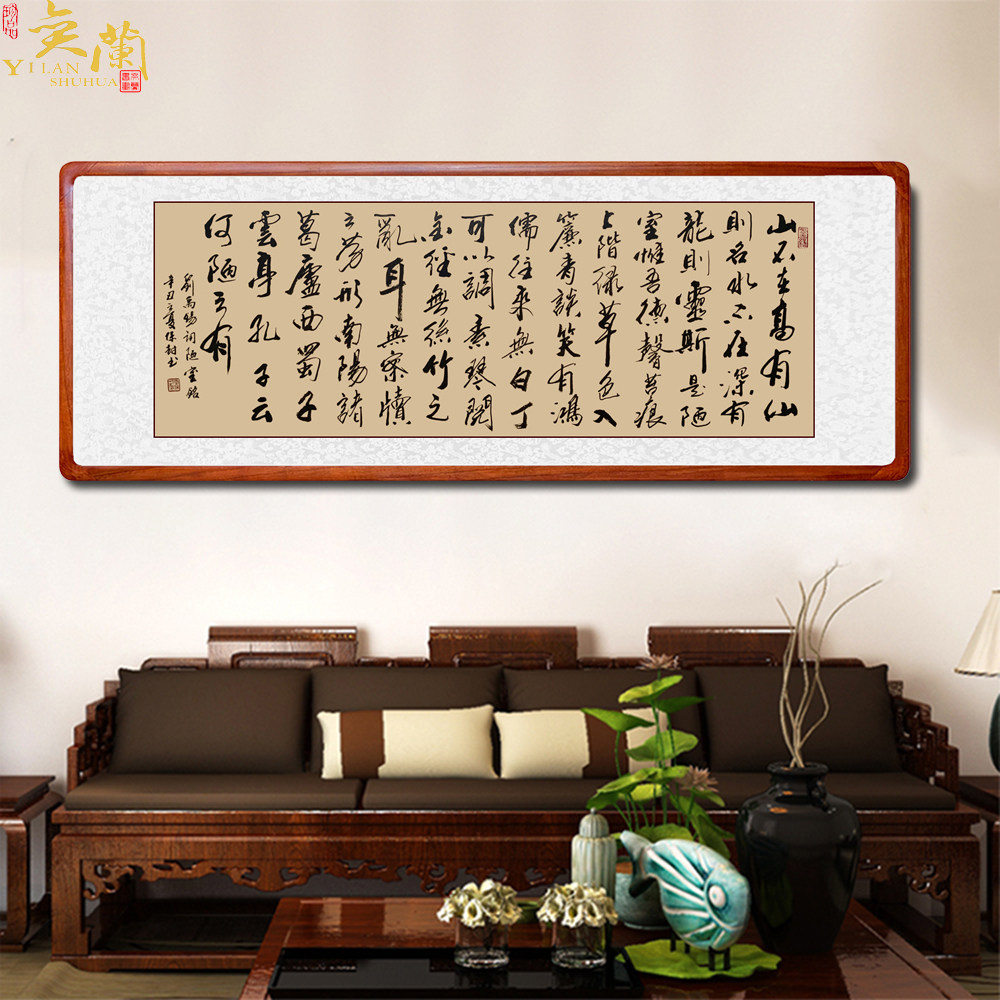 奕蘭
YILAN
SHUHUA
山不在高有仙
則名水不在深有
龍則靈斯是陋
室惟吾德馨苔痕
上階緑草色入
簾青談笑有鴻
儒往來無白丁
可以調素琴閱
金經無絲竹之
亂耳無案牘
之勞形南陽諸
葛廬西蜀子
雲亭孔子云
何陋之有
劉禹錫詞陋室銘
辛丑之夏